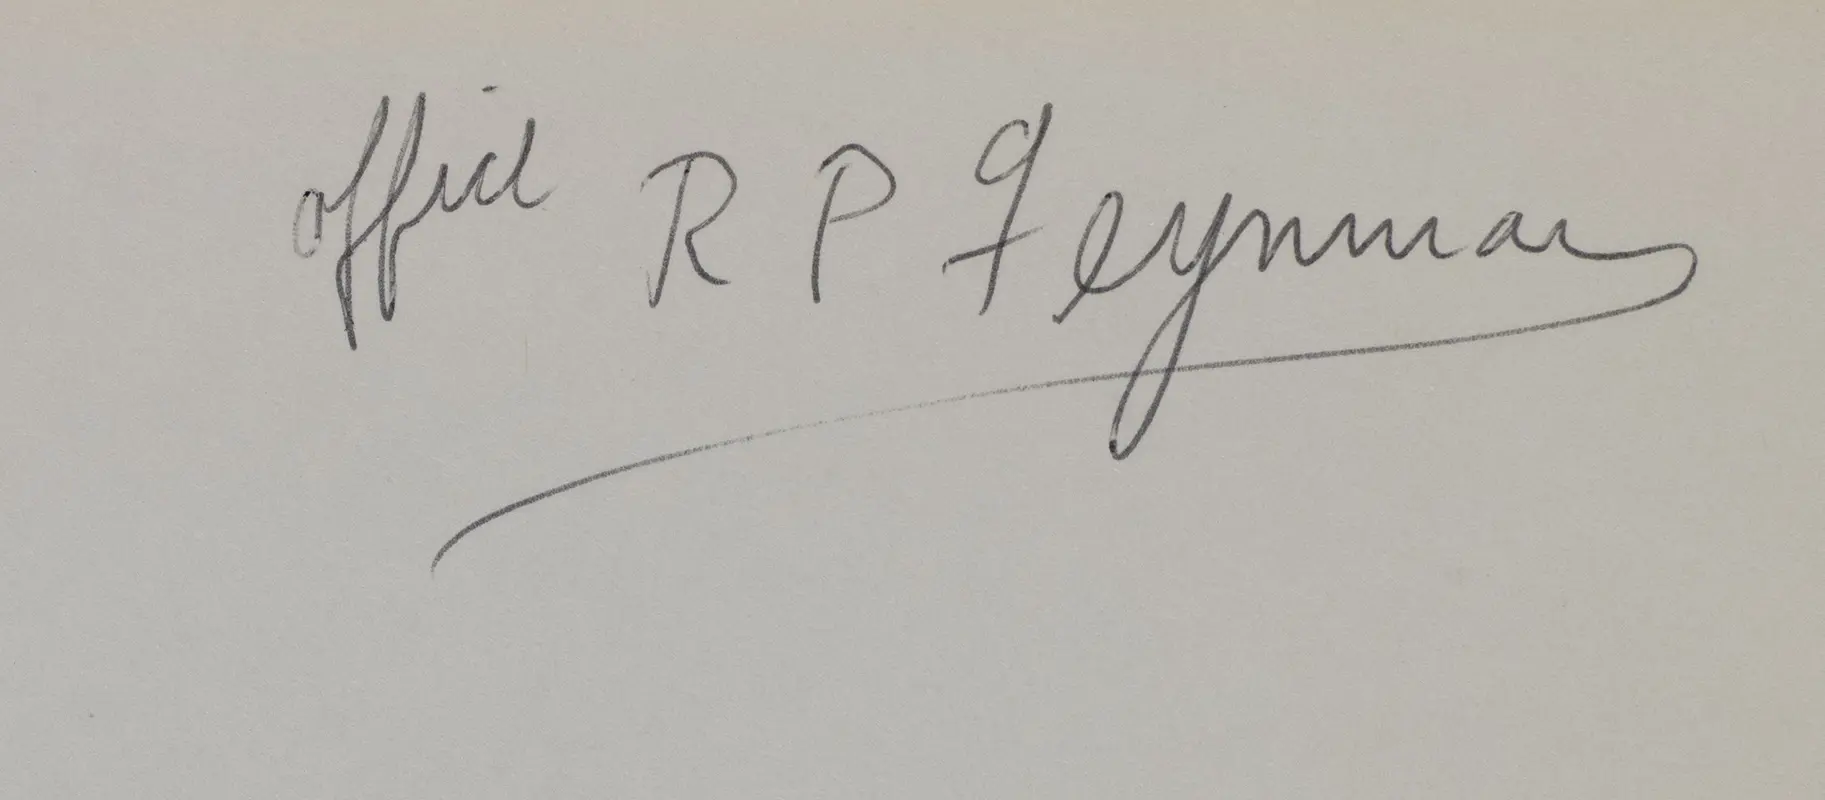 office R P Feynman